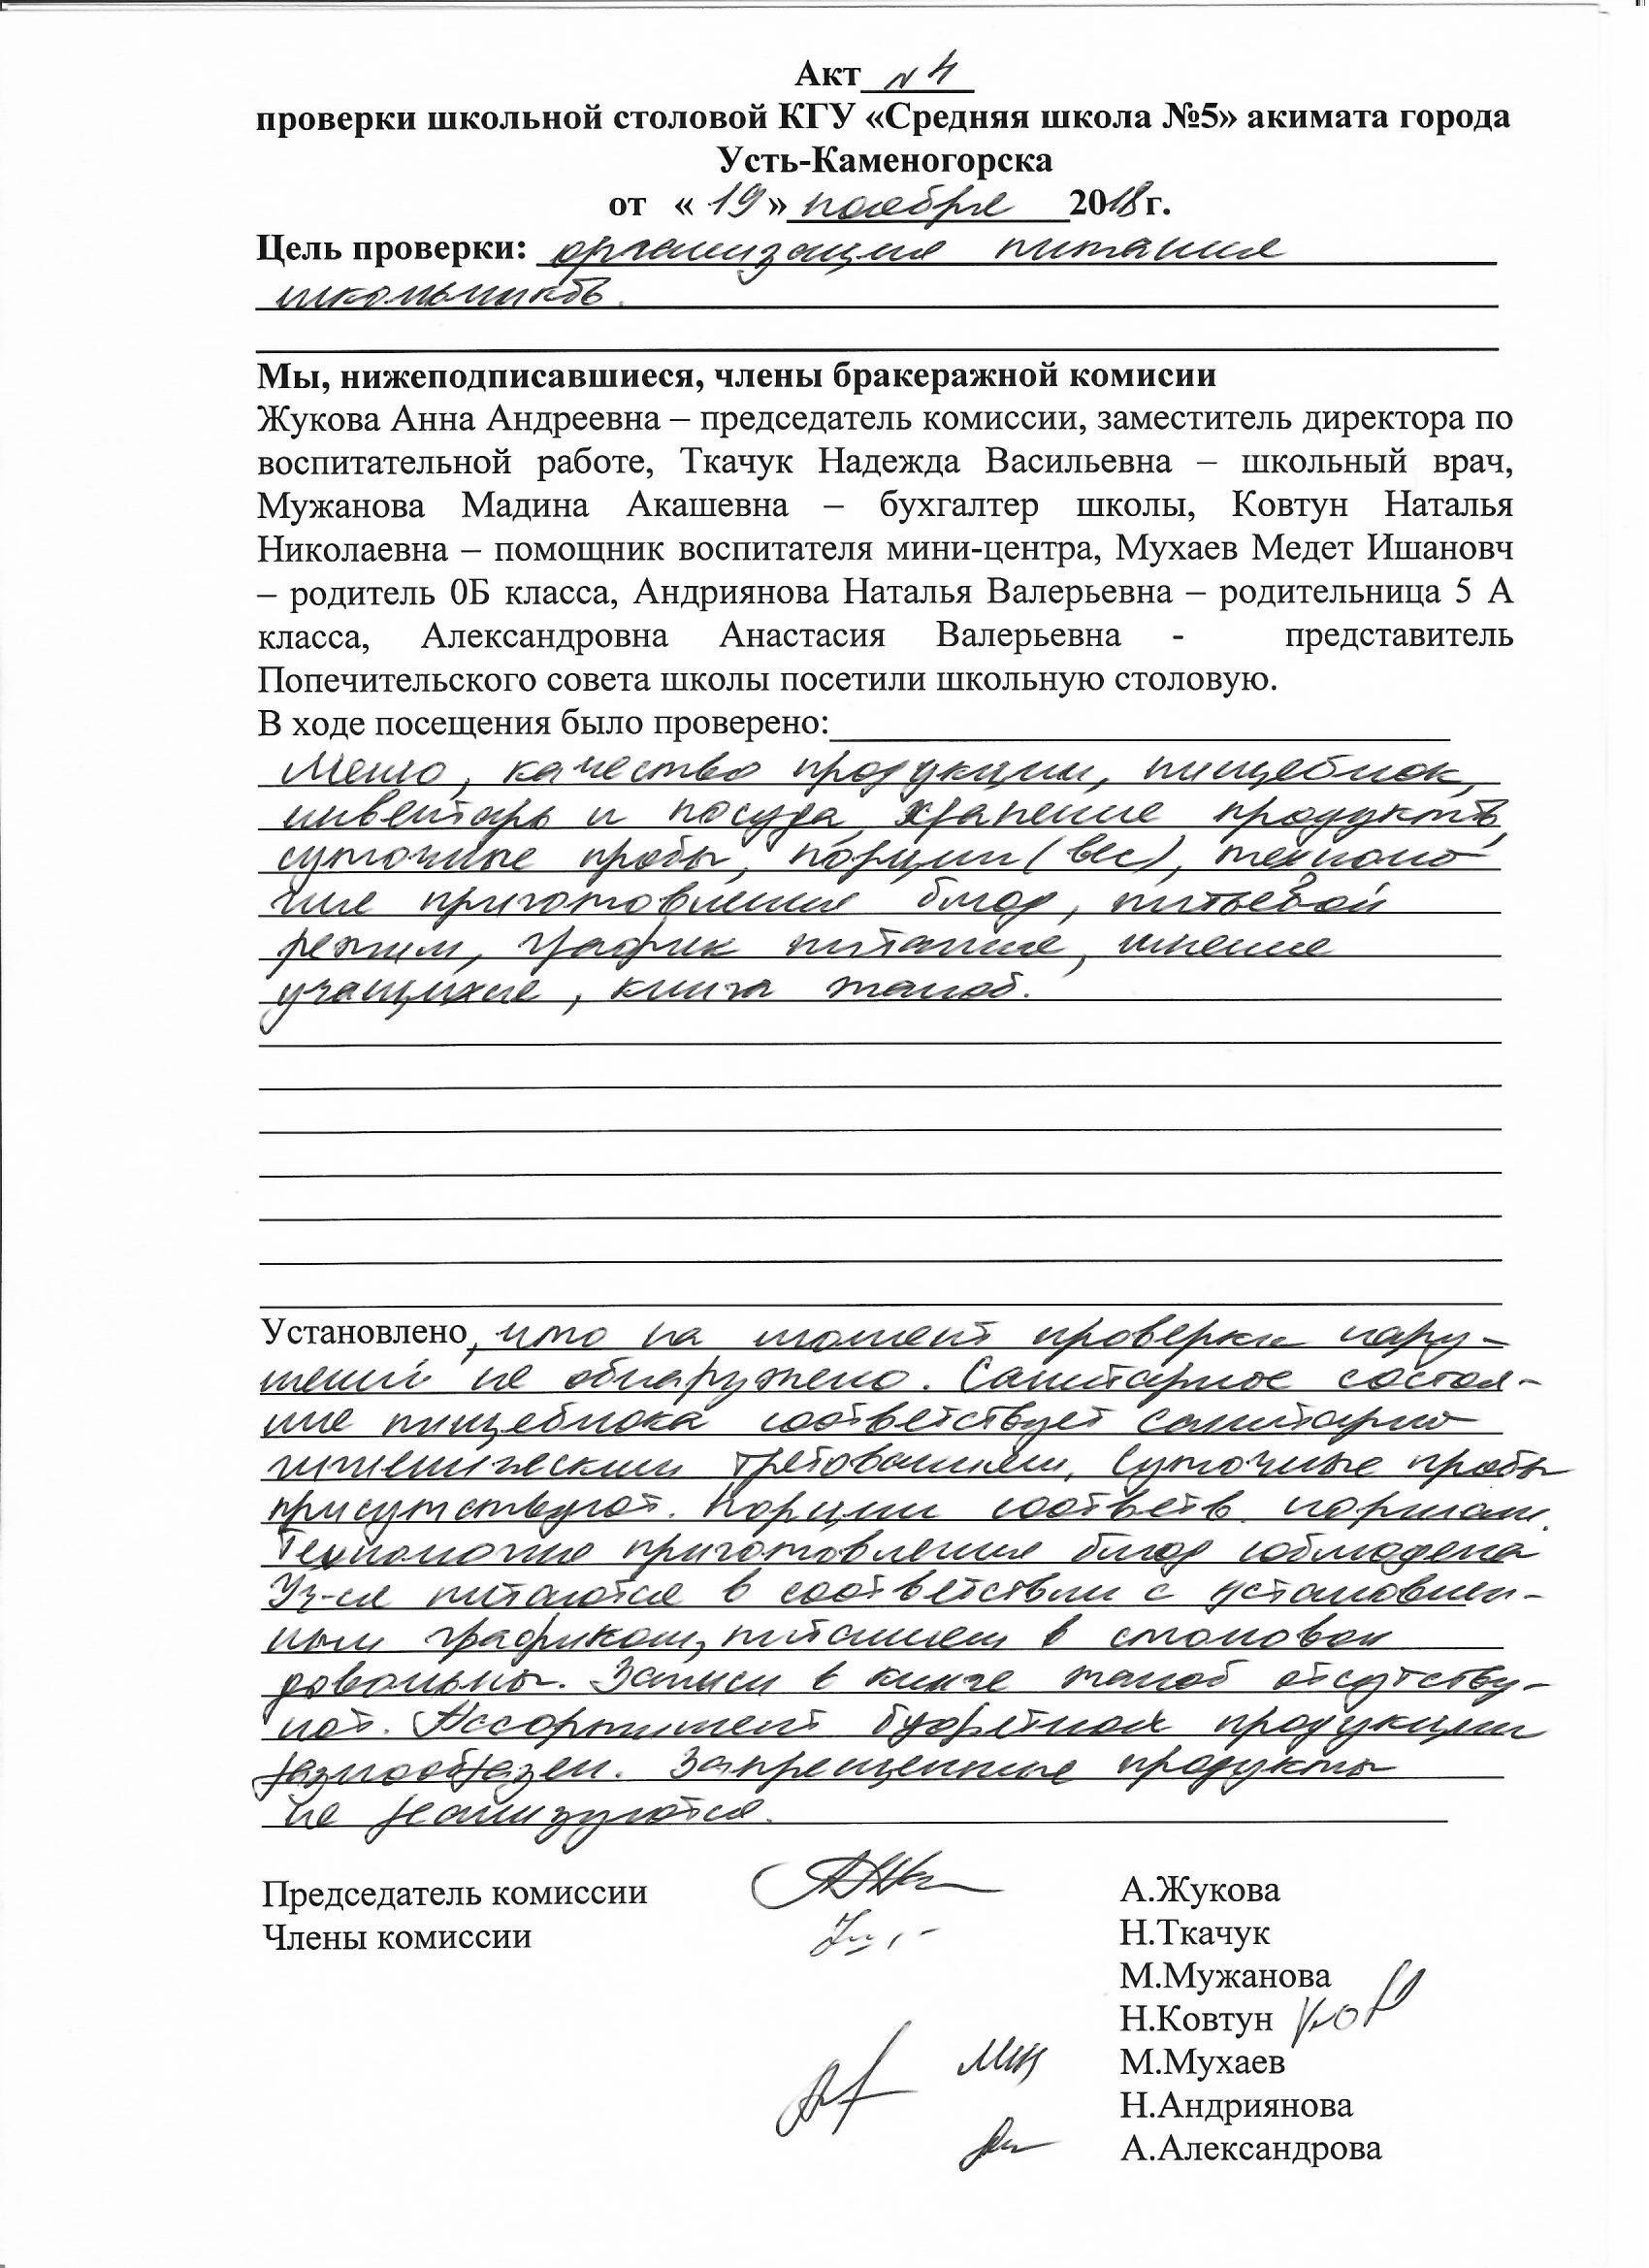 Акт N 4
проверки школьной столовой КГУ «Средняя школа №5» акимата города
Усть-Каменогорска
от « 19 » ноября 2018 г.
Цель проверки: организация питания
школьников.
Мы, нижеподписавшиеся, члены бракеражной комисии
Жукова Анна Андреевна – председатель комиссии, заместитель директора по
воспитательной работе, Ткачук Надежда Васильевна – школьный врач,
Мужанова Мадина Акашевна – бухгалтер школы, Ковтун Наталья
Николаевна – помощник воспитателя мини-центра, Мухаев Медет Ишановч
– родитель 0Б класса, Андриянова Наталья Валерьевна – родительница 5 А
класса, Александровна Анастасия Валерьевна - представитель
Попечительского совета школы посетили школьную столовую.
В ходе посещения было проверено:
Меню, качество продукции, пищеблок,
инвентарь и посуда, хранение продуктов,
суточные пробы, порции (вес), техноло-
гия приготовления блюд, питьевой
режим, график питания, мнение
учащихся, книга жалоб.
Установлено, что на момент проверки нару-
шений не обнаружено. Санитарное состоя-
ние пищеблока соответствует санитарно
гигиеническим требованиям, суточные пробы
присутствуют. Порции соответв. нормам.
Технология приготовления блюд соблюдена
Уч-ся питаются в соответствии с установлен-
ным графиком, питанием в столовой
довольны. Записи в книге жалоб отсутству-
ют. Ассортимент буфетной продукции
разнообразен. Запрещенные продукты
не реализуются.
Председатель комиссии А.Жукова
Члены комиссии Н.Ткачук
М.Мужанова
Н.Ковтун
М.Мухаев
Н.Андриянова
А.Александрова